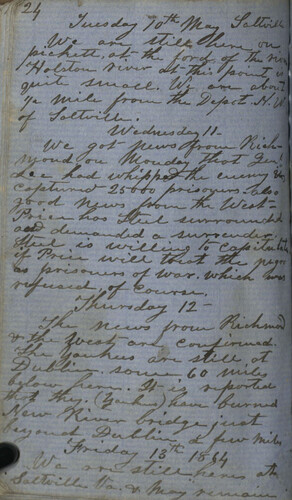 24
Tuesday 10th May Saltville
We are still here on
pickett, at the ford of the
Holston river at this point is
quite small. We are about
½ mile from the Depot N.W.
of Saltville.
Wednesday 11-
We got news from Rich-
mond on Monday that Gen'l
Lee had whipped the enemy &
captured 25000 prisoners. Also
good news from the West-
Price has Steel surrounded
and demanded a surrender.
Steel is willing to capitulate
if Price will that the
as prisoners of war. which was
refused, of course.
Thursday 12-
The news from Richmond
& the West are confirmed.
The Yankees are still at
Dublin. some 60 miles
below here. It is reported
that they (Yanks) have burned
New River bridge just
beyond Dublin a few miles
Friday 13th 1864
We are still here at
Saltville Va & may remain